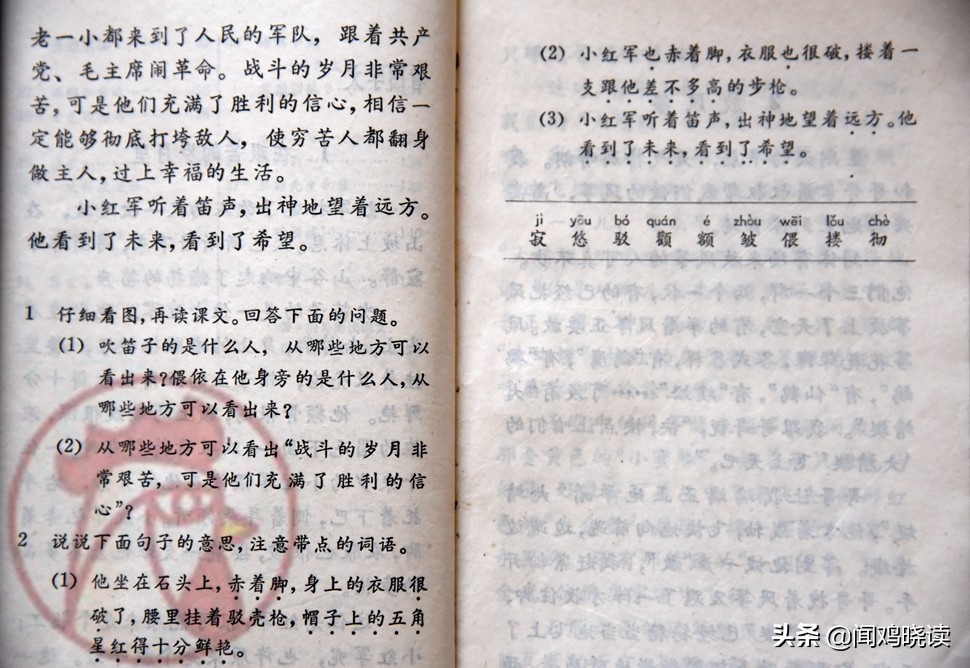 老一小都来到了人民的军队，跟着共产
党、毛主席闹革命。战斗的岁月非常艰
苦，可是他们充满了胜利的信心，相信一
定能够彻底打垮敌人，使穷苦人都翻身
做主人，过上幸福的生活。
小红军听着笛声，出神地望着远方。
他看到了未来，看到了希望。
1 仔细看图，再读课文。回答下面的问题。
(1) 吹笛子的是什么人，从哪些地方可以
看出来？偎依在他身旁的是什么人，从
哪些地方可以看出来？
(2) 从哪些地方可以看出“战斗的岁月非
常艰苦，可是他们充满了胜利的信
心”？
2 说说下面句子的意思，注意带点的词语。
(1) 他坐在石头上，赤着脚，身上的衣服很
破了，腰里挂着驳壳枪，帽子上的五角
星红得十分鲜艳。
(2) 小红军也赤着脚，衣服也很破，搂着一
支跟他差不多高的步枪。
(3) 小红军听着笛声，出神地望着远方。他
看到了未来，看到了希望。
jì yōu bó quán é zhòu wēi lǒu chè
寂 悠 驳 颧 额 皱 偎 搂 彻
头条 @闻鸡晓读